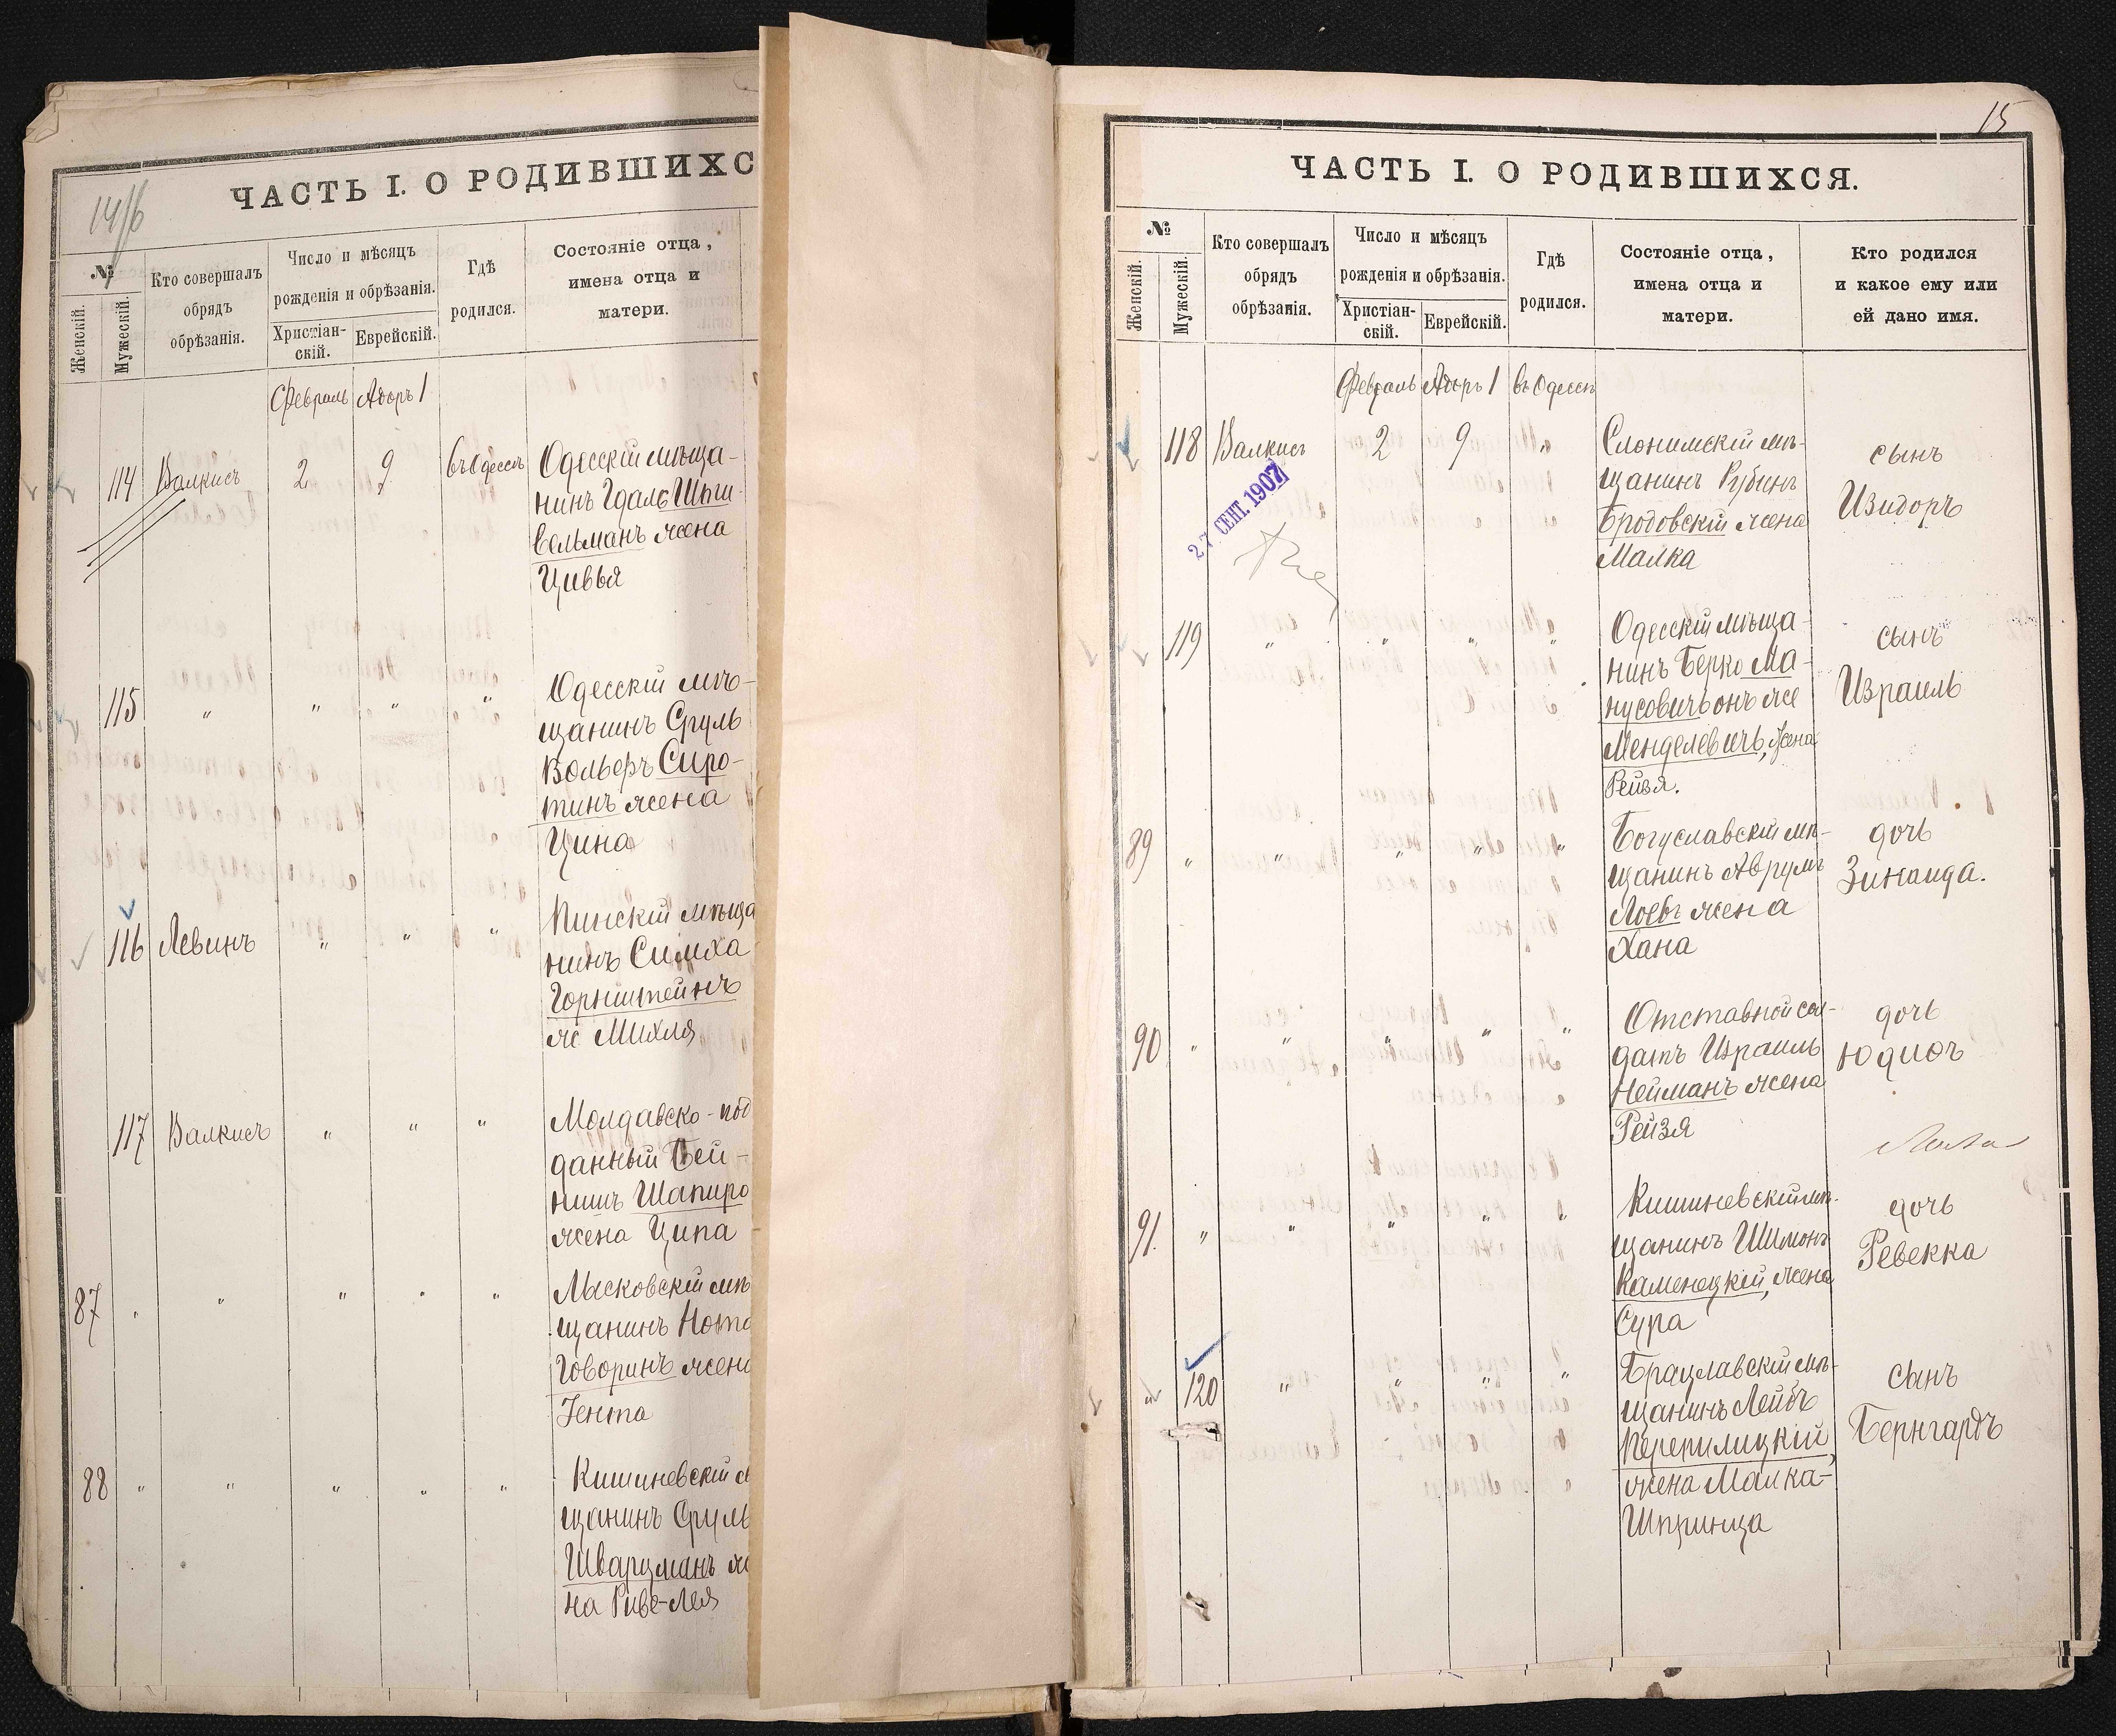 ЧАСТЬ I. О РОДИВШИХС
№
Женскій.
Мужескій.
Кто совершалъ
обрядъ
обрѣзанія.
Число и мѣсяцъ
рожденія и обрѣзанія.
Христіан-
скій.
Еврейскій.
Гдѣ
родился.
Состояніе отца,
имена отца и
матери.
Февраль Адоръ 1
114 Валкисъ 2 9 въ Одессѣ Одесскій мѣща-
нинъ Гдаль Шпи-
вельманъ жена
Цивья
115 " " " " Одесскій мѣ-
щанинъ Сруль
Вольфъ Сиро-
тинъ жена
Цина
116 Левинъ " " " Пинскій мѣща
нинъ Симха
Горнштейнъ
ж Михля
117 Валкисъ " " " Молдавско-под
данный Бей-
нишъ Шапиро
жена Ципа
87 " " " " " Лысковскій мѣ
щанинъ Нота
Говоринъ жена
Гента
88 " " " " " Кишиневскій м
щанинъ Сруль
Шварцманъ же
на Риве-Лея
15
ЧАСТЬ I. О РОДИВШИХСЯ.
№
Женскій.
Мужескій.
Кто совершалъ
обрядъ
обрѣзанія.
Число и мѣсяцъ
рожденія и обрѣзанія.
Христіан-
скій.
Еврейскій.
Гдѣ
родился.
Состояніе отца,
имена отца и
матери.
Кто родился
и какое ему или
ей дано имя.
Февраль Адоръ 1 въ Одессѣ
118 Валкисъ 2 9 " Слонимскій мѣ- сынъ
щанинъ Рубинъ Изидоръ
Бродовскій жена
Малка
27 СЕНТ. 1907
119 " " " " Одесскій мѣща- сынъ
нинъ Берко Ма- Израиль
нусовичъ онъ же
Менделевичъ, жена
Рейзя.
89 " " " " " Богуславскій мѣ- дочь
щанинъ Аврумъ Зинаида.
Лоевъ жена
Хана
90 " " " " " Отставной сол- дочь
датъ Израиль Юдиѳь
Нейманъ жена
Рейзя
91. " " " " " Кишиневскій мѣ- дочь
щанинъ Шимонъ Ревекка
Каменецкій, жена
Сура
" 120 " " " " Брацлавскій мѣ- сынъ
щанинъ Лейбъ Бернгардъ
Перепилицкій,
жена Малка-
Шпринца